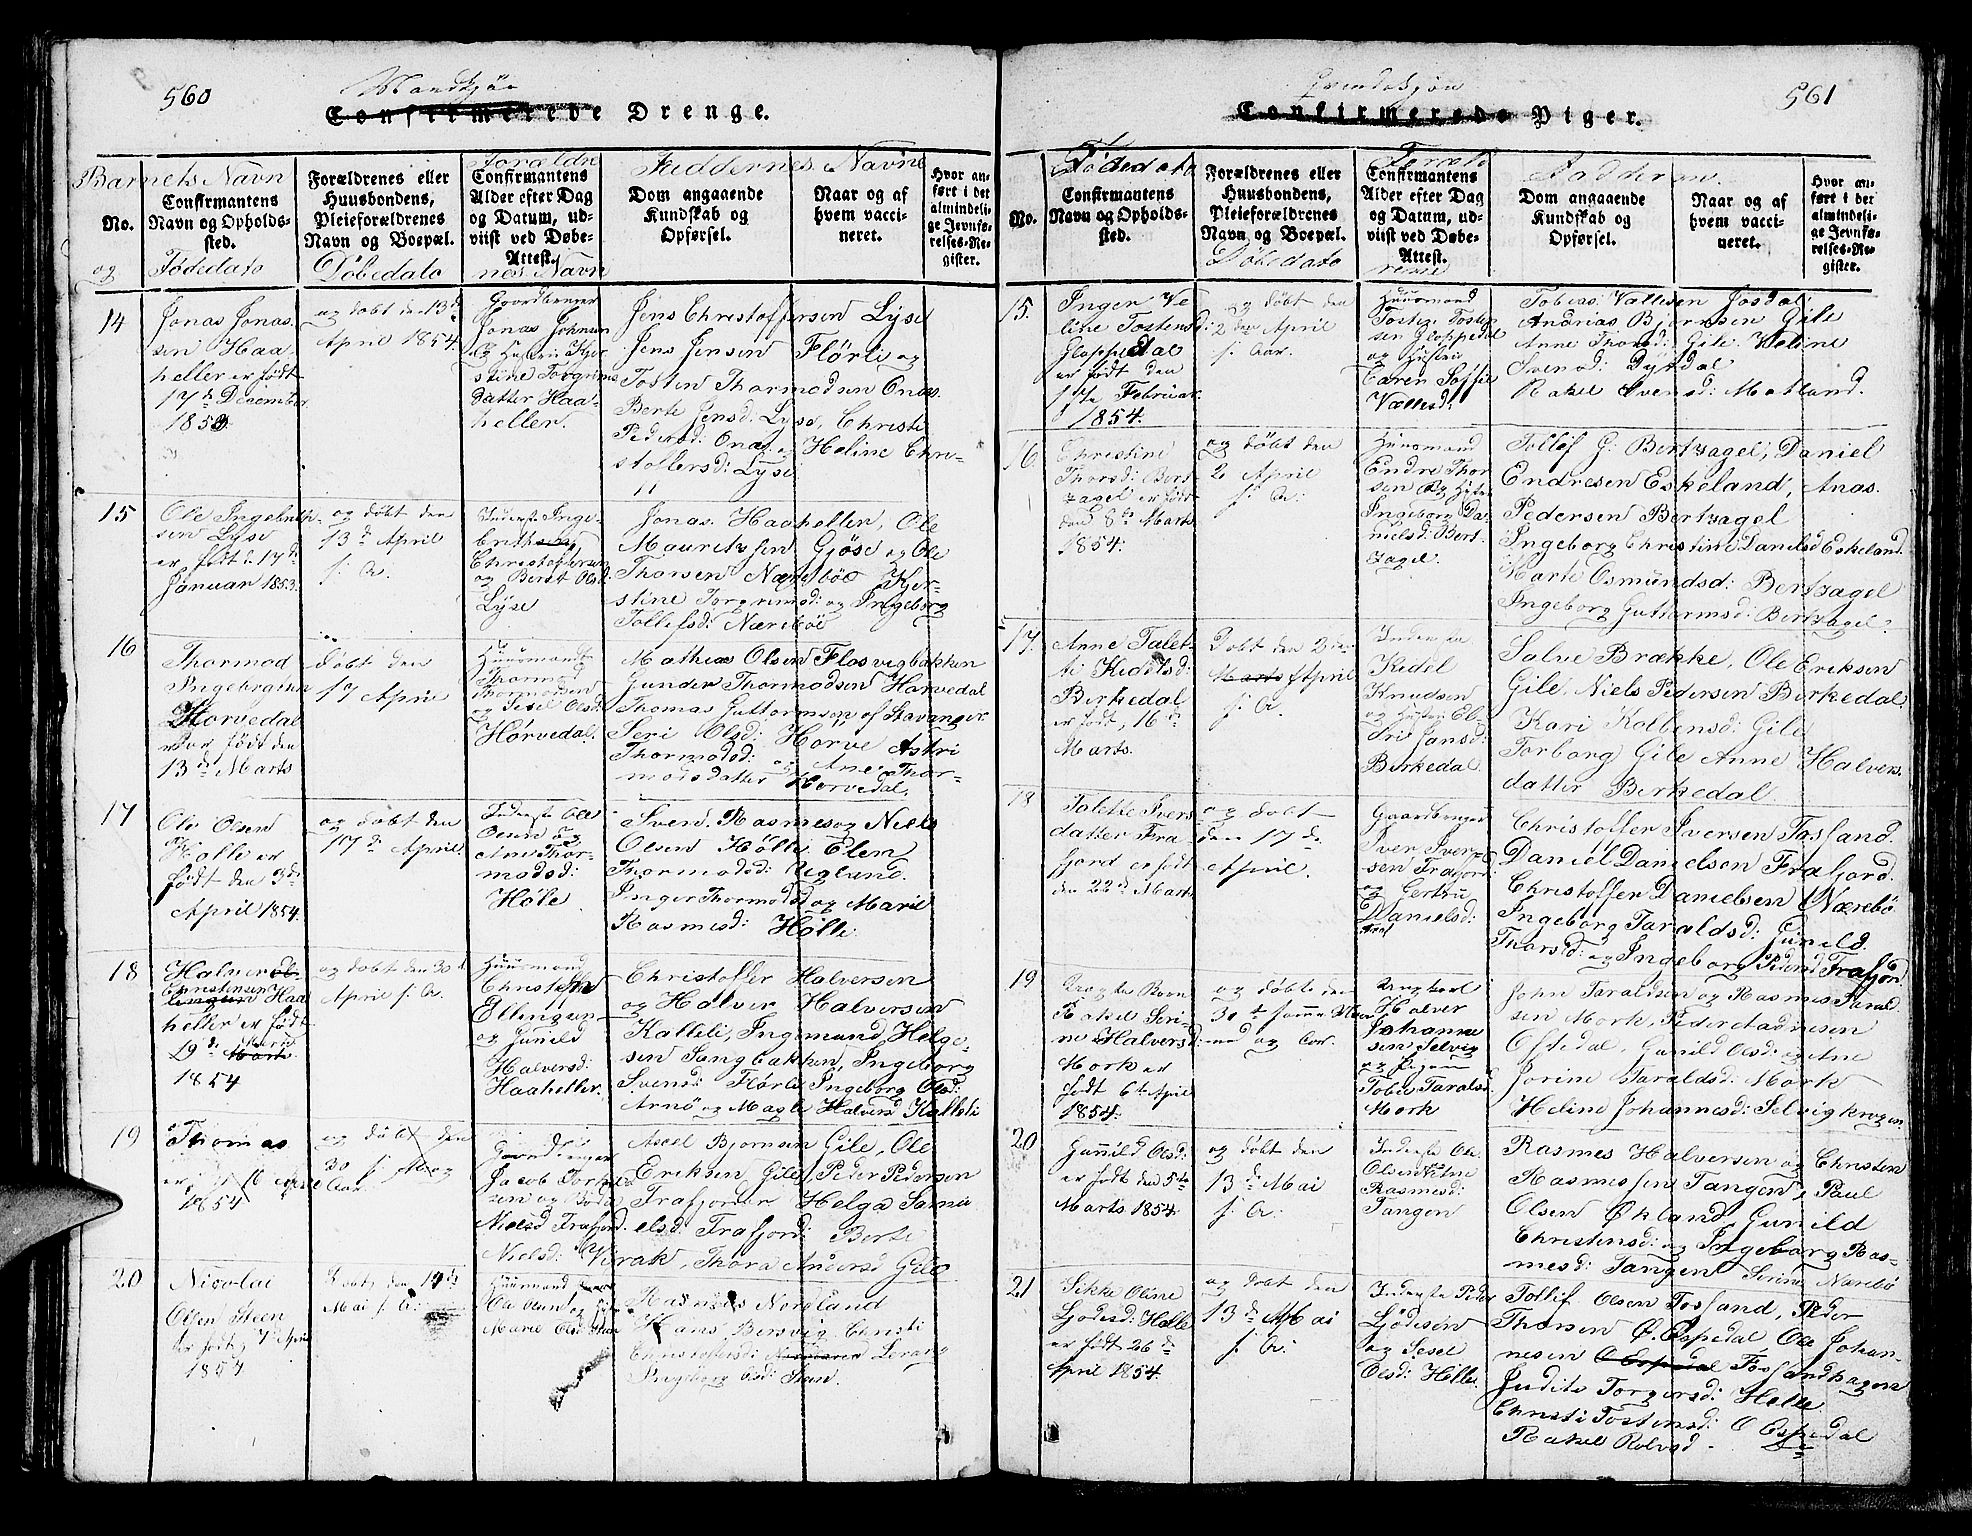 560
Mandkjön
Confirmerede Drenge.
Barnets Navn
Forældre
Faddernes Navne
No.
Confirmantens Navn og Opholds-
sted.
Forældrenes eller
Huusbondens,
Pleieforældrenes
Navn og Boepæl.
Confirmantens
Alder efter Dag
og Datum, ud-
viist ved Døbe-
Attest.
Dom angaaende
Kundskab og
Opførsel.
Naar og af
hvem vacci-
neret.
Hvor an-
ført i det
almindeli-
ge Jevnfø-
relses-Re-
gister.
og
Fødedato
Döbedato
nes Navn
14
Jonas Jonas
sen Haa-
heller er født
17de December
1853
og døbt den 13de
April 1854
Gaardbruger
Jonas Johnsen
og Hustrue Kjer
stine Torgrims
datter Haa-
heller.
Jens Christoffersen Lyse
Jens Jensen Flörli og
Tosten Thormodsen Onas
Berte Jensd: Lyse, Christi
Pedersd: Onas, og Heline Chri-
stoffersd: Lyse
15
Ole Ingebreth-
sen Lyse
er født d. 17de
Januar 1853
og døbt den
13de April
s: A:
Inderste Inge-
brith
Christoffersen
og Beret Olsd:
Lyse
Jonas Haaheller, Ole
Mauritssen Gjöse og Ole
Thorsen Næreböe Kjer-
stine Torgrimsd: og Ingeborg
Tollefsd: Næreböe
16
Thormod
Horvedal
er født den
13de Marts
døbt den
17 April
Huusmand
Thormod
Thormodsen
og Sesel Olsd:
Hörvedal.
Mathias Olsen Flosvigbakken
Gunder Thormodsen Horvedal
Thomas Guttormsen af Stavanger
Seri Olsd: Horve Astri
Thormodsd: og Ane Thor-
modsdatter Horvedal.
17
Ole Olsen
Hølle er
født den 3de
April 1854.
og døbt den
17de April.
Inderste Ole
Olsen og
Ane Thor-
modsd:
Höle
Svend Rasmes og Niels
Olsen Hölle Elen
Thormodsd: Uglund.
Inger Thormodsd og Marie
Rasmesd: Hölle
18
Halver
Christensen
Haa
heller er født
29de Marts
1854
og døbt den 30te
April s: A:
Huusmand
Christen
Ellingsen
og Gunild
Halversd:
Haaheller.
Christoffer Halversen
og Halver Halversen
Kalleli, Ingemund Helge-
sen Sangbakken, Ingeborg
Svensd: Flörli, Ingeborg Olsd:
Arnö og Masle Halversd Kalleli
19
Thomas
1854
og døbt den
30 s:
Aar
Gaardbruger
Jacob Tor
sen og
Nielsd Frafjord
Axel Bjornsen Gile, Ole
Eriksen Gile, Peder Pedersen
Frafjord
Helga Sami
elsd: Frafjord: Berte
Nielsd: Virak, Thora Andersd Gile
20
Nicolai
Olsen Steen
er født 7de April
1854
Döbt den 14de
Mai s: A:
Huusmand
Ole Olsen og
Marie Olsd Steen
Rasmes Nordland
Hans Bersvig, Christi
Christofersd: Lerang
Ingeborg Olsd: Steen.
561
Qvindekjön
Confirmerede Piger.
Födedato
Foræld
Fadderne
No.
Confirmantens
Navn og Opholds-
sted.
Forældrenes eller
Huusbondens,
Pleieforældrenes
Navn og Boepæl.
Confirmantens
Alder efter Dag
og Datum, ud-
viist ved Døbe-
Attest.
Dom angaaende
Kundskab og
Opførsel.
Naar og af
hvem vacci-
neret.
Hvor an-
ført i det
almindeli-
ge Jevnfø-
relses-Re-
gister.
Döbedato
rene
15.
Inger Ve
line Tostensd:
Gloppedal
er født den
17de Februar
1854.
og døbt den
2den April
s: Aar.
Huusmand
Tosten Tosten
sen Gloppedal
og Hustrue
Caren Soffie
Vallesd:
Tobias Vallesen Josdal
Andrias Bjornsen Gile
Anne Thorsd: Gile Heline
Svensd: Dyrdal
Rakel Svensd: Matland.
16
Christine
Thorsd: Bert-
zagel er født
den 8de Marts
1854.
og døbt den
2 April
s: A:
Huusmand
Endre Thor
sen og
Ingeborg Da-
nielsd: Bert-
zagel.
Tollef G: Bertzagel, Daniel
Endresen Eskeland, Anas
Pedersen Bertzagel
Ingeborg Christine Danielsd Eskeland.
Marte Osmundsd: Bertzagel
Ingeborg Guttormsd: Bertzagel.
17.
Anne Talet-
te Kidelsd:
Birkedal
er født, 16de
Marts.
Dobt den 2den
Marts April
s: A:
Kidel
Knudsen
og Hustrue El-
Jansd:
Birkedal.
Salve Brække, Ole Eriksen
Gile, Niels Pedersen Birkedal
Kari Kolbensd: Gile
Torborg Gile Anne Halvers
datter Birkedal.
18
Talette Ivers
datter Fra
fjord er født
den 22de Marts
og døbt
den 17de
April.
Gaardbruger
Iver Iver-
sen Frafjord
og Gertru
Danielsd:
Christoffer Iversen Fosland.
Daniel Danielsen Frafjord.
Christoffer Danielsen Nærebö
Ingeborg Taraldsd: Gunild
Thorsd: og Ingeborg Pedersd Frafjord
19
Uægte Barn
Rakel Seri-
ne Halversd:
Mork er
født 6te April
1854.
og døbt den
30te samme Maa
ned og Aar.
Ungkarl
Halver
Johanne
sen Selvig
og Pigen
Tobie Taralsd:
Mork
John Taraldsen og Rasmes Tarald
sen Mork, Peder Madsesen
Oftedal, Gunild Olsd: og Ane
Jorine Taraldsd: Mork
Heline Johannesd: Selvigkrogen
20
Gunild Olsd:
er født den 5te
Marts 1854.
og døbt den
13de Mai
s: A:
Inderste Ole
Olsen Ane
Rasmesd:
Tangen
Rasmes Halversen og Christen
Rasmessen Tangen, Paul
Olsen Økland Gunild
Christensd: og Ingeborg Ras-
mesd: Tangen Serine Nærebö
21
Sikke Oline
Ljodesd: Helle
er født 26de
April 1854.
og døbt den
13de Mai
s: A:
Inderste Peder
Ljödesen
og Sesel
Olsd: Helle
Tollif Olsen Fosland, Peder
Thorsen Ø. Espedal Ole Johan-
nesen O Espedal Foslandhagen
Judite Torgersd: Helle
Christi Tostensd: O Espedal
Rakel Rolvsd